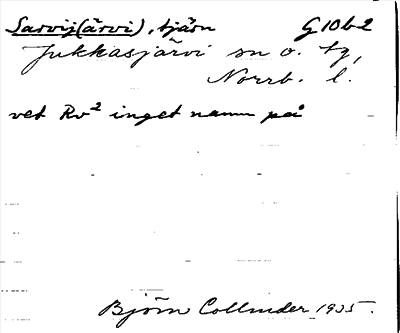 Sarvij(ärvi), tjärn G10b2
Jukkasjärvi sn o. tg,
Norrb. l.
vet Rv² inget namn på
Björn Collinder 1935.